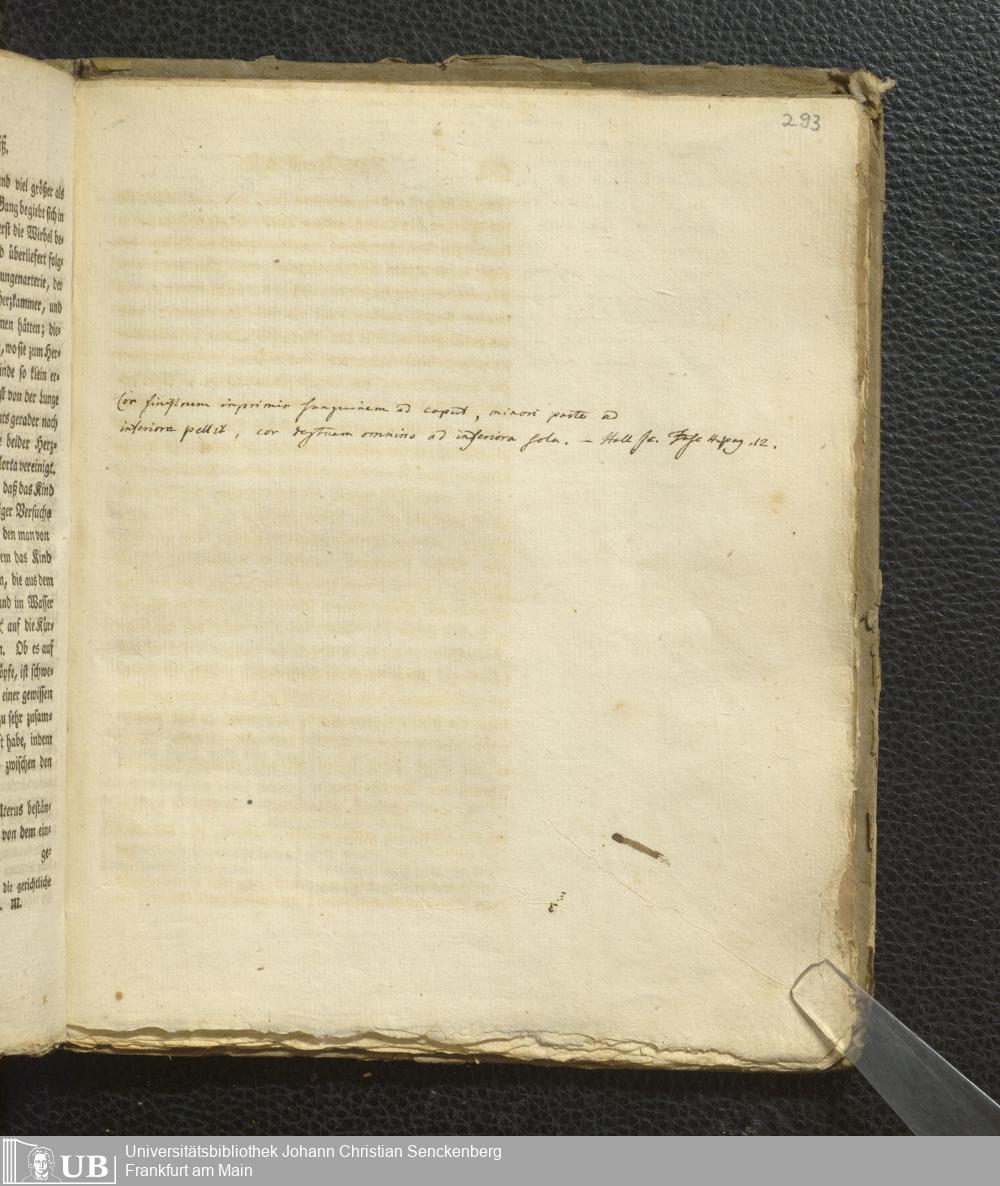 293
iß.
und viel größer als
Gang begiebt sich in
erst die Wirbel be-
d überliefert folg-
ungenarterie, der
herzkammer, und
men hätten; die-
, wo sie zum Her-
inde so klein er-
st von der Lunge
uts gerader nach
e beider Herz-
lorta vereinigt.
daß das Kind
iger Versuche
den man von
em das Kind
n, die aus dem
und im Wasser
auf die Kür-
n. Ob es auf
öpfe, ist schwe-
einer gewissen
zu sehr zusam-
st habe, indem
zwischen den
Uterus bestän-
von dem ein-
ge-
die gerichtliche
. M.
Cor sinistrum inprimis sanguinem ad caput, minori parte ad
inferiora pellit, cor dextrum omnino ad inferiora sola. – Hall pag. 12.
UB
Universitätsbibliothek Johann Christian Senckenberg
Frankfurt am Main